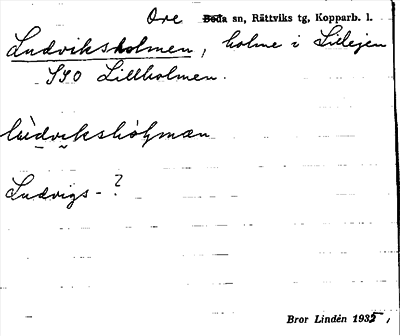 Ore Boda sn, Rättviks tg, Kopparb. l.
Ludviksholmen, holme i Lillejen
SSO Lillholmen.
lùdvikshòłmæn
Ludvigs- ?
Bror Lindén 1935,